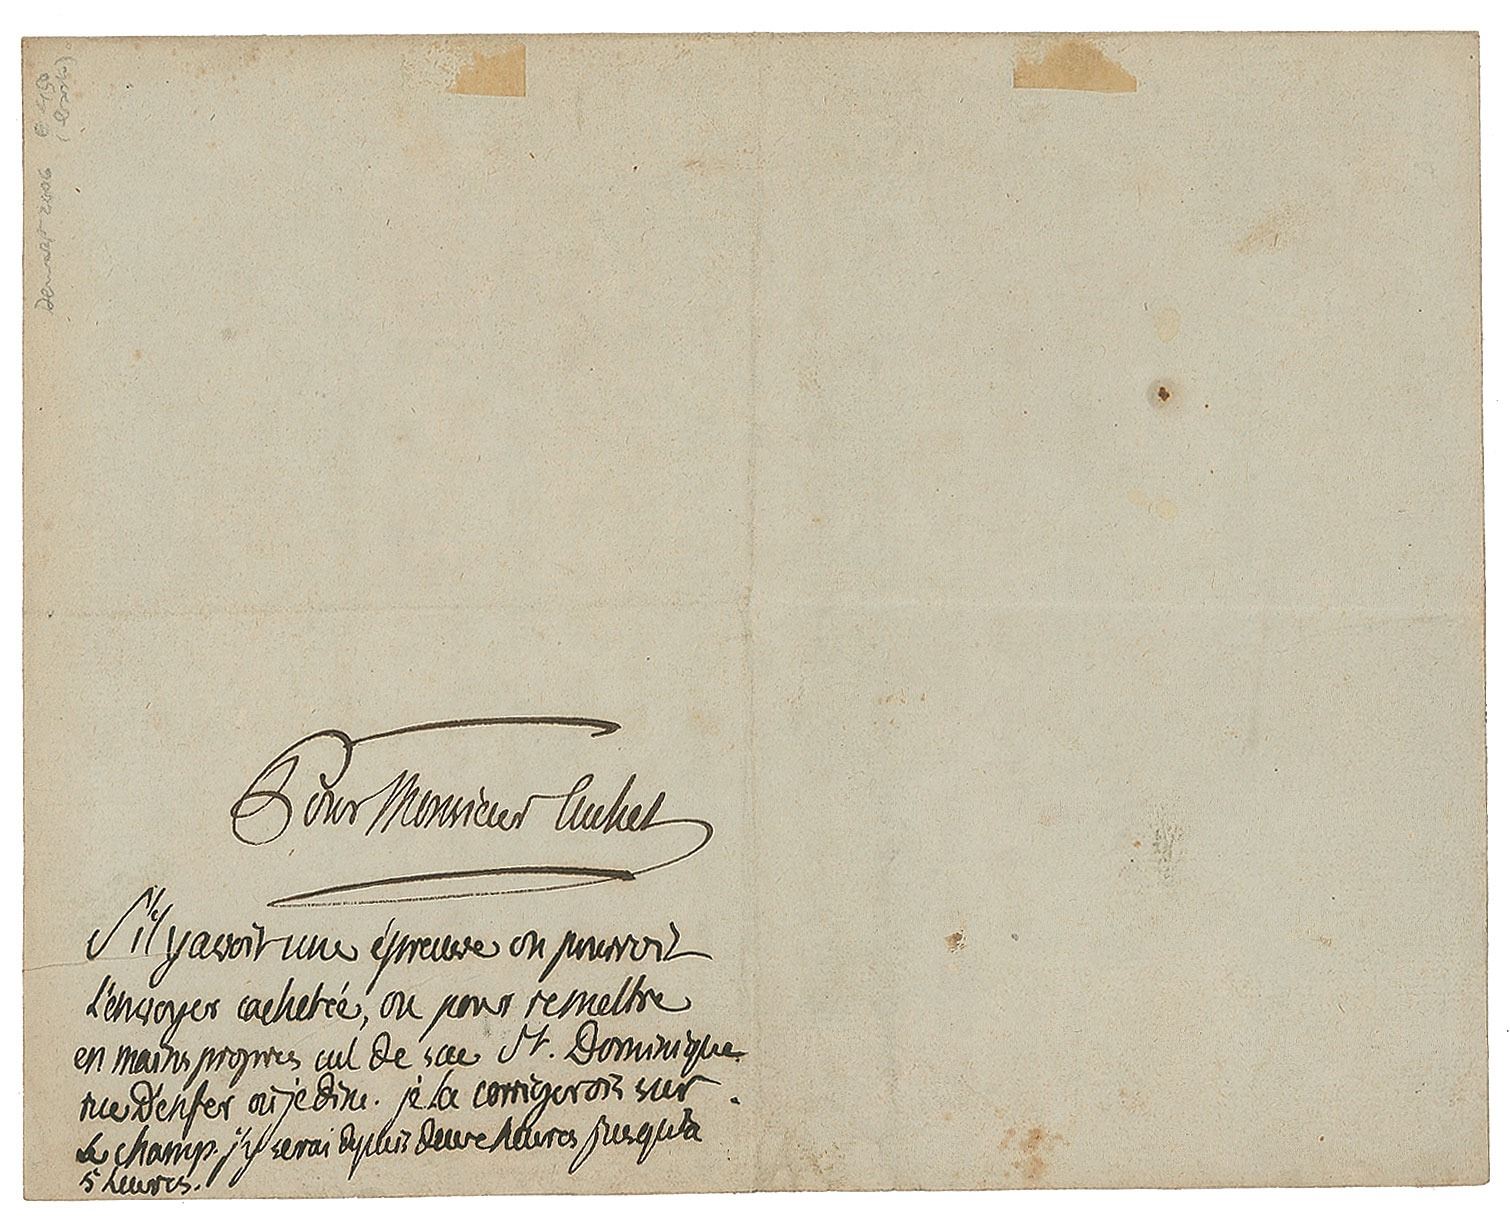 Pour Monsieur Cuchet
S'il y avoit une épreuve on pourroit
l'envoyer cachetée, ou pour remettre
en mains propres cul de sac St. Dominique
rue D'enfer où je dine. je la corrigerois sur
le champ. j'y serai depuis deux heures jusqu'à
5 heures.